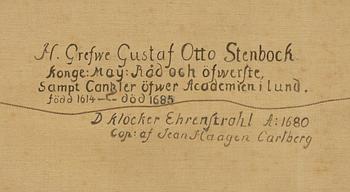 H. Grefwe Gustaf Otto Stenbock
Konge: May: Råd och öfwerste,
Sampt Cantzler öfwer Academien i lund.
född 1614 – död 1685
D Klöcker Ehrenstrahl A: 1680
Cop: af Jean Haagen Carlberg